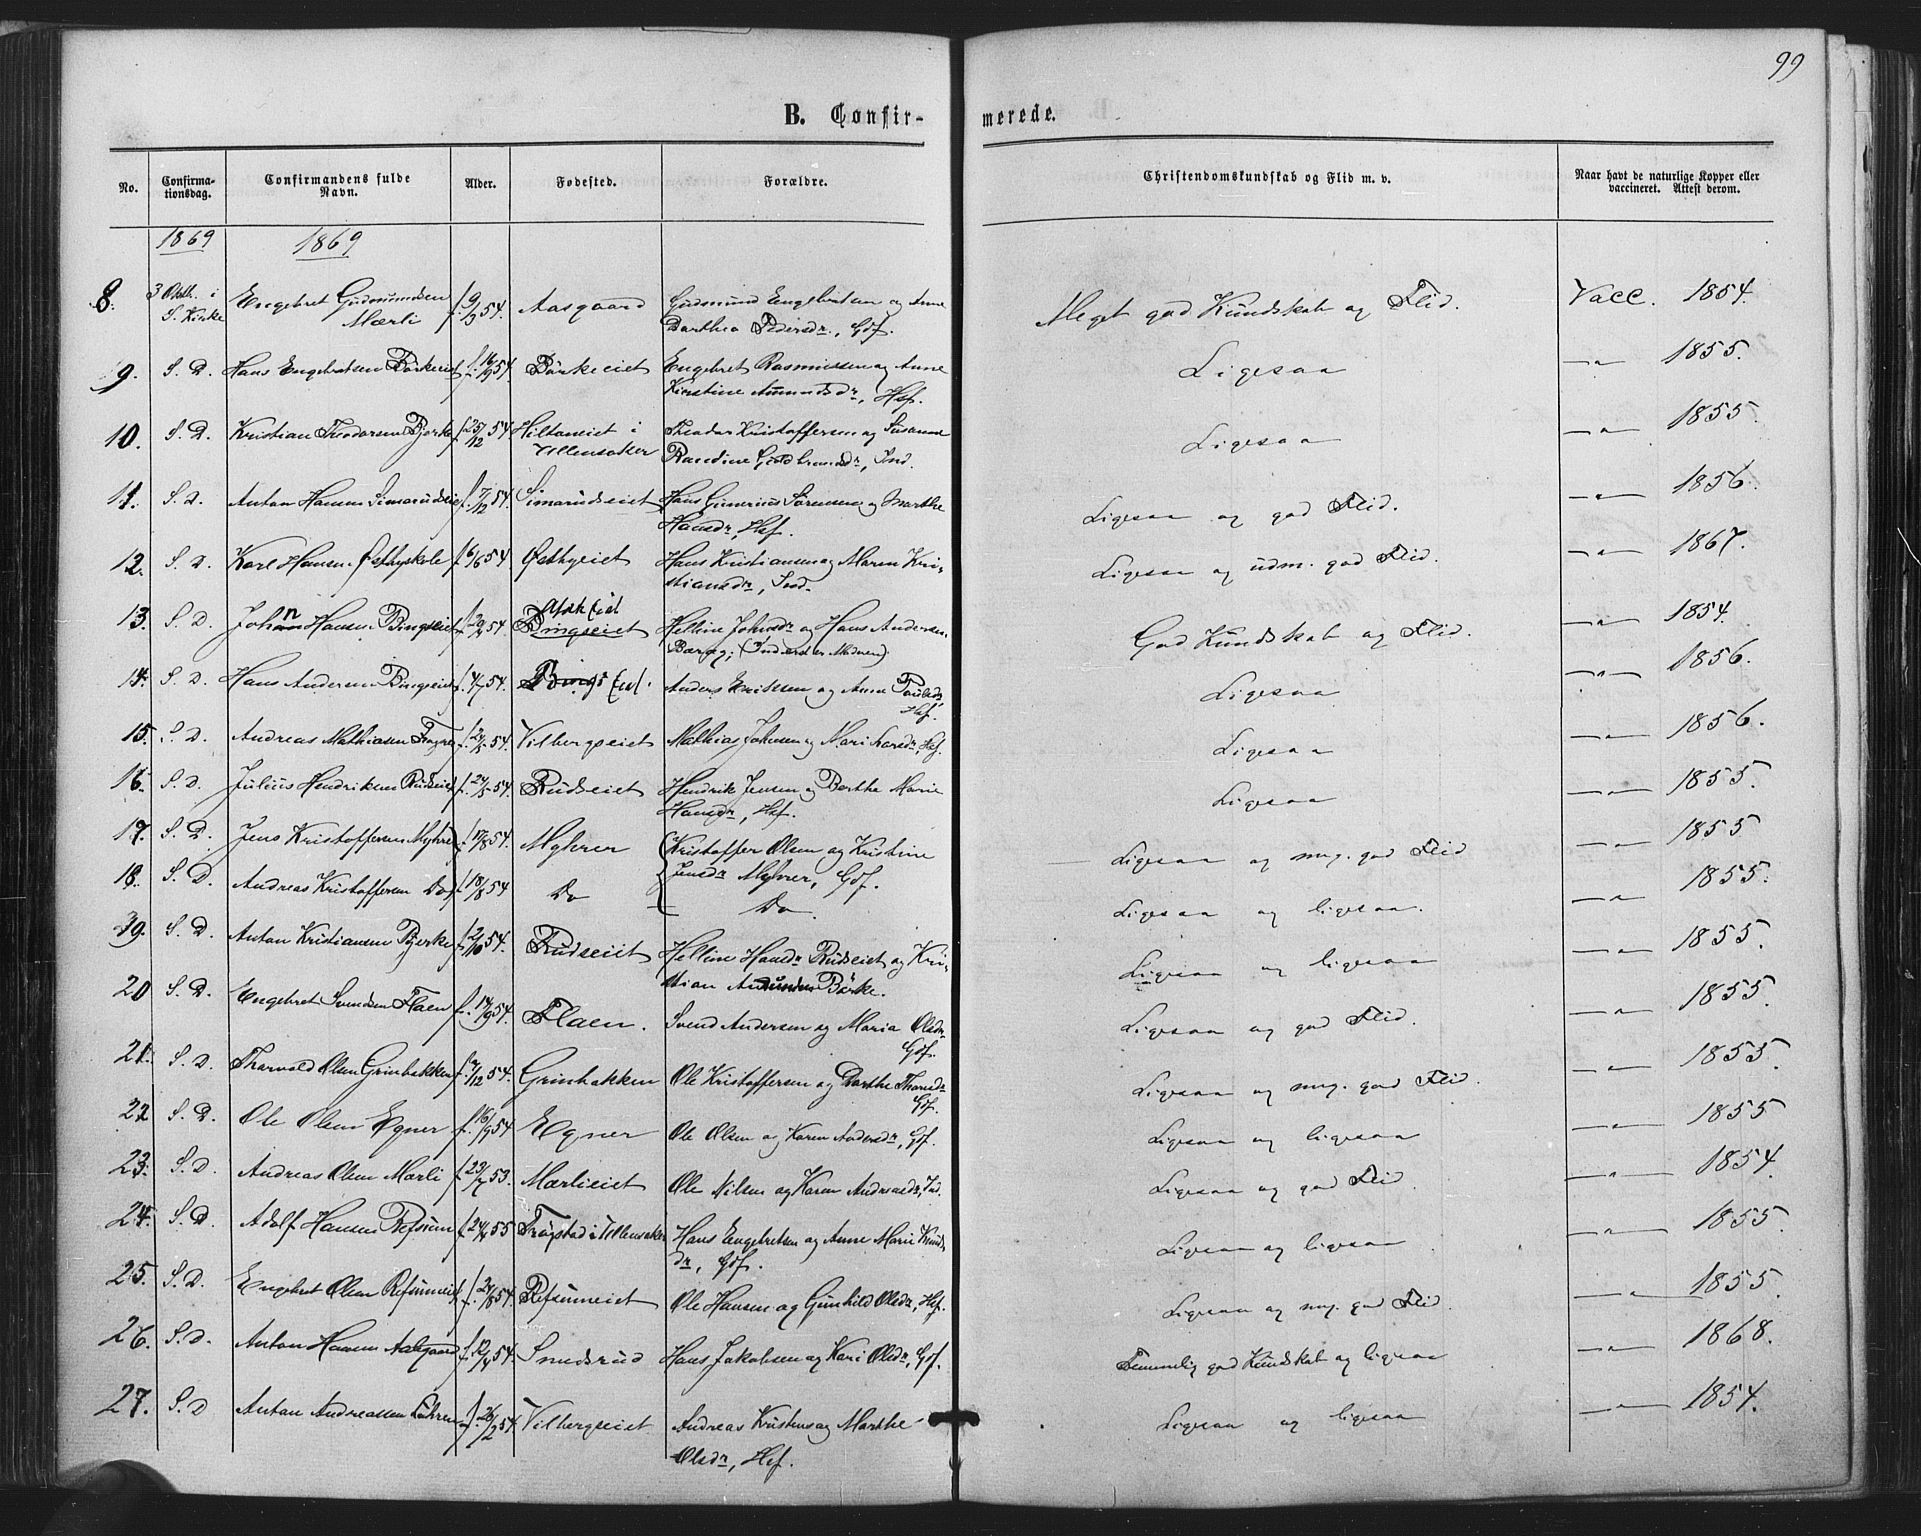 99
B. Confir- merede.
No. Confirma-tionsdag. Confirmandens fulde Navn. Alder. Fødested. Forældre. Christendomskundskab og Flid m. v. Naar havt de naturlige Kopper eller vaccineret. Attest derom.
1869 1869
8. 3 Oktb. i S. Kirke Engebret Gudmundsen Mærli f. 9/3 54. Aasgaard Gudmund Engebretsen og Anne Meget god Kundskab og Flid. Vacc. 1854.
Dorthea Pedersdr, Gdf.
9. S. D. Hans Engebretsen Börkeeiet f. 16/9 54. Börkeeiet Engebret Rasmussen og Anne Ligesaa —"— 1855.
Kirstine Amundsdr, Hsf.
10. S. D. Kristian Theodorsen Bjerke f. 25/12 54 Hiltoneiet i Ullensaker Theodor Kristoffersen og Susanne Ligesaa —"— 1855.
Randine Guldbrandsdr, Ind.
11. S. D. Anton Hansen Simarudseiet f. 7/12 54. Simarudseiet Hans Gunerius Sørensen og Marthe Ligesaa og god Flid. —"— 1856.
Hansdr, Hsf.
12. S. D. Karl Hansen Østbyskole f. 6/6 54 Østbyeiet Hans Kristiansen og Maren Kri- Ligesaa og udm. god Flid. —"— 1867.
stiansdr, Ind.
13. S. D. Johan Hansen Bingseiet f. 20/4 54 Bingseiet Helline Johnsdr og Hans Andersen God Kundskab og Flid. —"— 1854.
14. S. D. Hans Andersen Bingseiet f. 4/7 54. Bings Eiet. Anders Eriksen og Anne Paulsdr Ligesaa —"— 1856.
Hsf.
15. S. D. Andreas Mathiasen f. 2/5 54. Vilbergseiet Mathias Johnsen og Mari Larsdr, Hsf. Ligesaa —"— 1856.
16. S. D. Julius Hendriksen Rudseiet f. 24/5 54. Rudseiet Hendrik Jensen og Berthe Marie Ligesaa —"— 1855.
Hansdr, Hsf.
17. S. D. Jens Kristoffersen Myhrer f. 18/8 54. Myhrer Kristoffer Olsen og Kristine Ligesaa og mg. god Flid —"— 1855
Jensdr Myhrer, Gdf.
18. S. D. Andreas Kristoffersen Do f. 18/8 54 Do Do. Ligesaa og ligesaa. —"— 1855.
19. S. D. Anton Kristiansen Bjerke f. 2/10 54. Rudseiet Helline Hansdr Rudseiet og Kri- Ligesaa og ligesaa —"— 1855.
stian Amundsen Börke.
20 S. D. Engebret Svendsen Flaen f. 14/9 54. Flaen. Svend Andersen og Maria Olsdr Ligesaa og god Flid. —"— 1855.
Gdf.
21. S. D. Thorvald Olsen Grinbakken f. 7/12 54. Grinbakken Ole Kristoffersen og Dorthe Thorsdr Ligesaa og mg. god Flid. —"— 1855.
Gdf.
22 S. D. Ole Olsen Egner f. 16/9 54 Egner Ole Olsen og Karen Andersdr, Gdf. Ligesaa og ligesaa —"— 1855
23. S. D. Andreas Olsen Mærli f. 23/7 53. Mærlieiet Ole Nilsen og Karen Andreasdr, Ind. Ligesaa og god Flid. —"— 1854
24. S. D Adolf Hansen Refsum f. 24/4 55 Trøgstad i Ullensaker Hans Engebretsen og Anne Marie Knuds- Ligesaa og ligesaa. —"— 1855.
dr, Gdf.
25. S. D. Engebret Olsen Refsumeiet f. 24/8 54. Refsumeiet Ole Hansen og Gunhild Olsdr, Hsf. Ligesaa og mg. god Flid. —"— 1855.
26. S. D. Anton Hansen Aasgaard f. 12/4 54. Smedsrud Hans Jakobsen og Kari Olsdr, Gdf. Temmelig god Kundskab og ligesaa —"— 1868.
27. S. D Anton Andreassen f. 26/2 54. Vilbergseiet Andreas og Marthe Ligesaa og ligesaa —"— 1854.
Olsdr, Hsf.